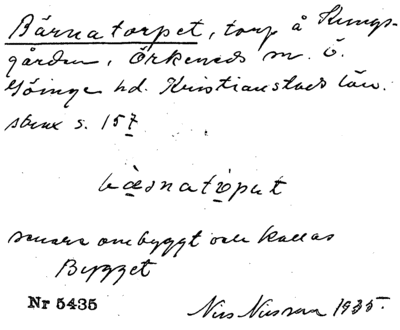 Bärnatorpet, torp å Kungs-
gården, Örkeneds sn. Ö.
Göinge hd. Kristianstads län.
s. 157
bæsnatoput
senare ombyggt och kallas
Bygget
Nr 5435
Nils Nilsson 1935.